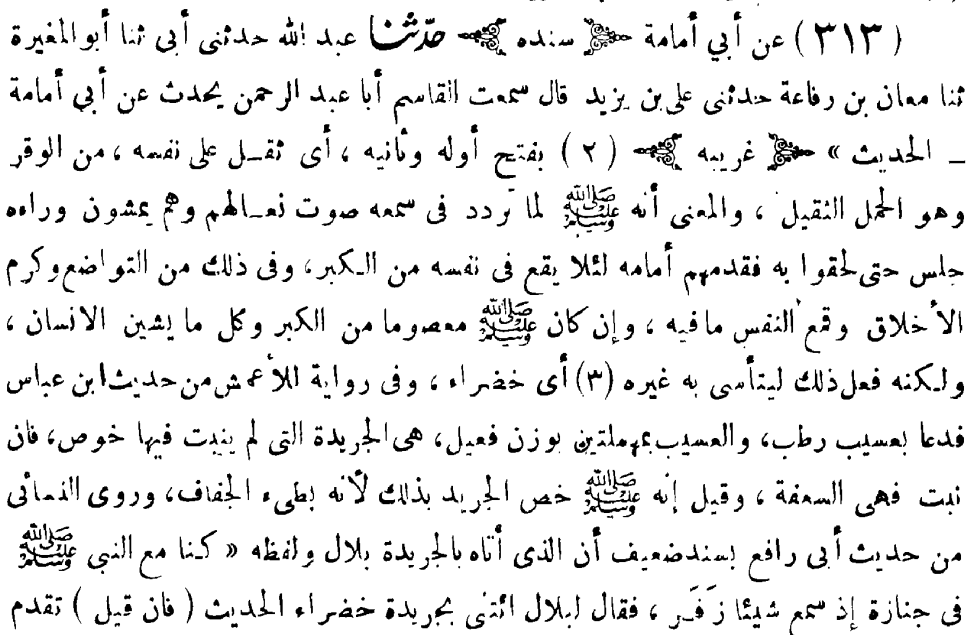 ( ٣١٣ ) عن أبي أمامة ﴿ سنده ﴾ حدّثنا عبد الله حدثنى أبى ثنا أبو المغيرة
ثنا معان بن رفاعة حدثنى على بن يزيد قال سمعت القاسم أبا عبد الرحمن يحدث عن أبي أمامة
ــ الحديث » ﴿ غريبه ﴾ ( ٢ ) بفتح أوله وثانيه ، أى ثقـل على نفسه ، من الوقر
وهو الحمل الثقيل ، والمعنى أنه ﷺ لما تردد فى سمعه صوت نعـالهم وهم يمشون وراءه
جلس حتى لحقوا به فقدمهم أمامه لئلا يقع فى نفسه من الـكبر، وفى ذلك من التواضع وكرم
الأخلاق وقمع النفس ما فيه ، وإن كان ﷺ معصوما من الكبر وكل ما يشين الانسان ،
ولـكنه فعل ذلك ليتأسى به غيره (٣) أى خضراء ، وفى رواية للأعمش من حديث ابن عباس
فدعا بعسيب رطب، والعسيب بمهملتين بوزن فعيل، هى الجريدة التى لم ينبت فيها خوص، فان
نبت فهى السعفة ، وقيل إنه ﷺ خص الجريد بذلك لأنه بطىء الجفاف، وروى النسائى
من حديث أبى رافع بسند ضعيف أن الذى أتاه بالجريدة بلال ولفظه « كـنا مع النبى ﷺ
فى جنازة إذ سمع شيئا زَفَـر ، فقال لبلال ائتنى بجريدة خضراء الحديث ( فان قيل ) تقدم